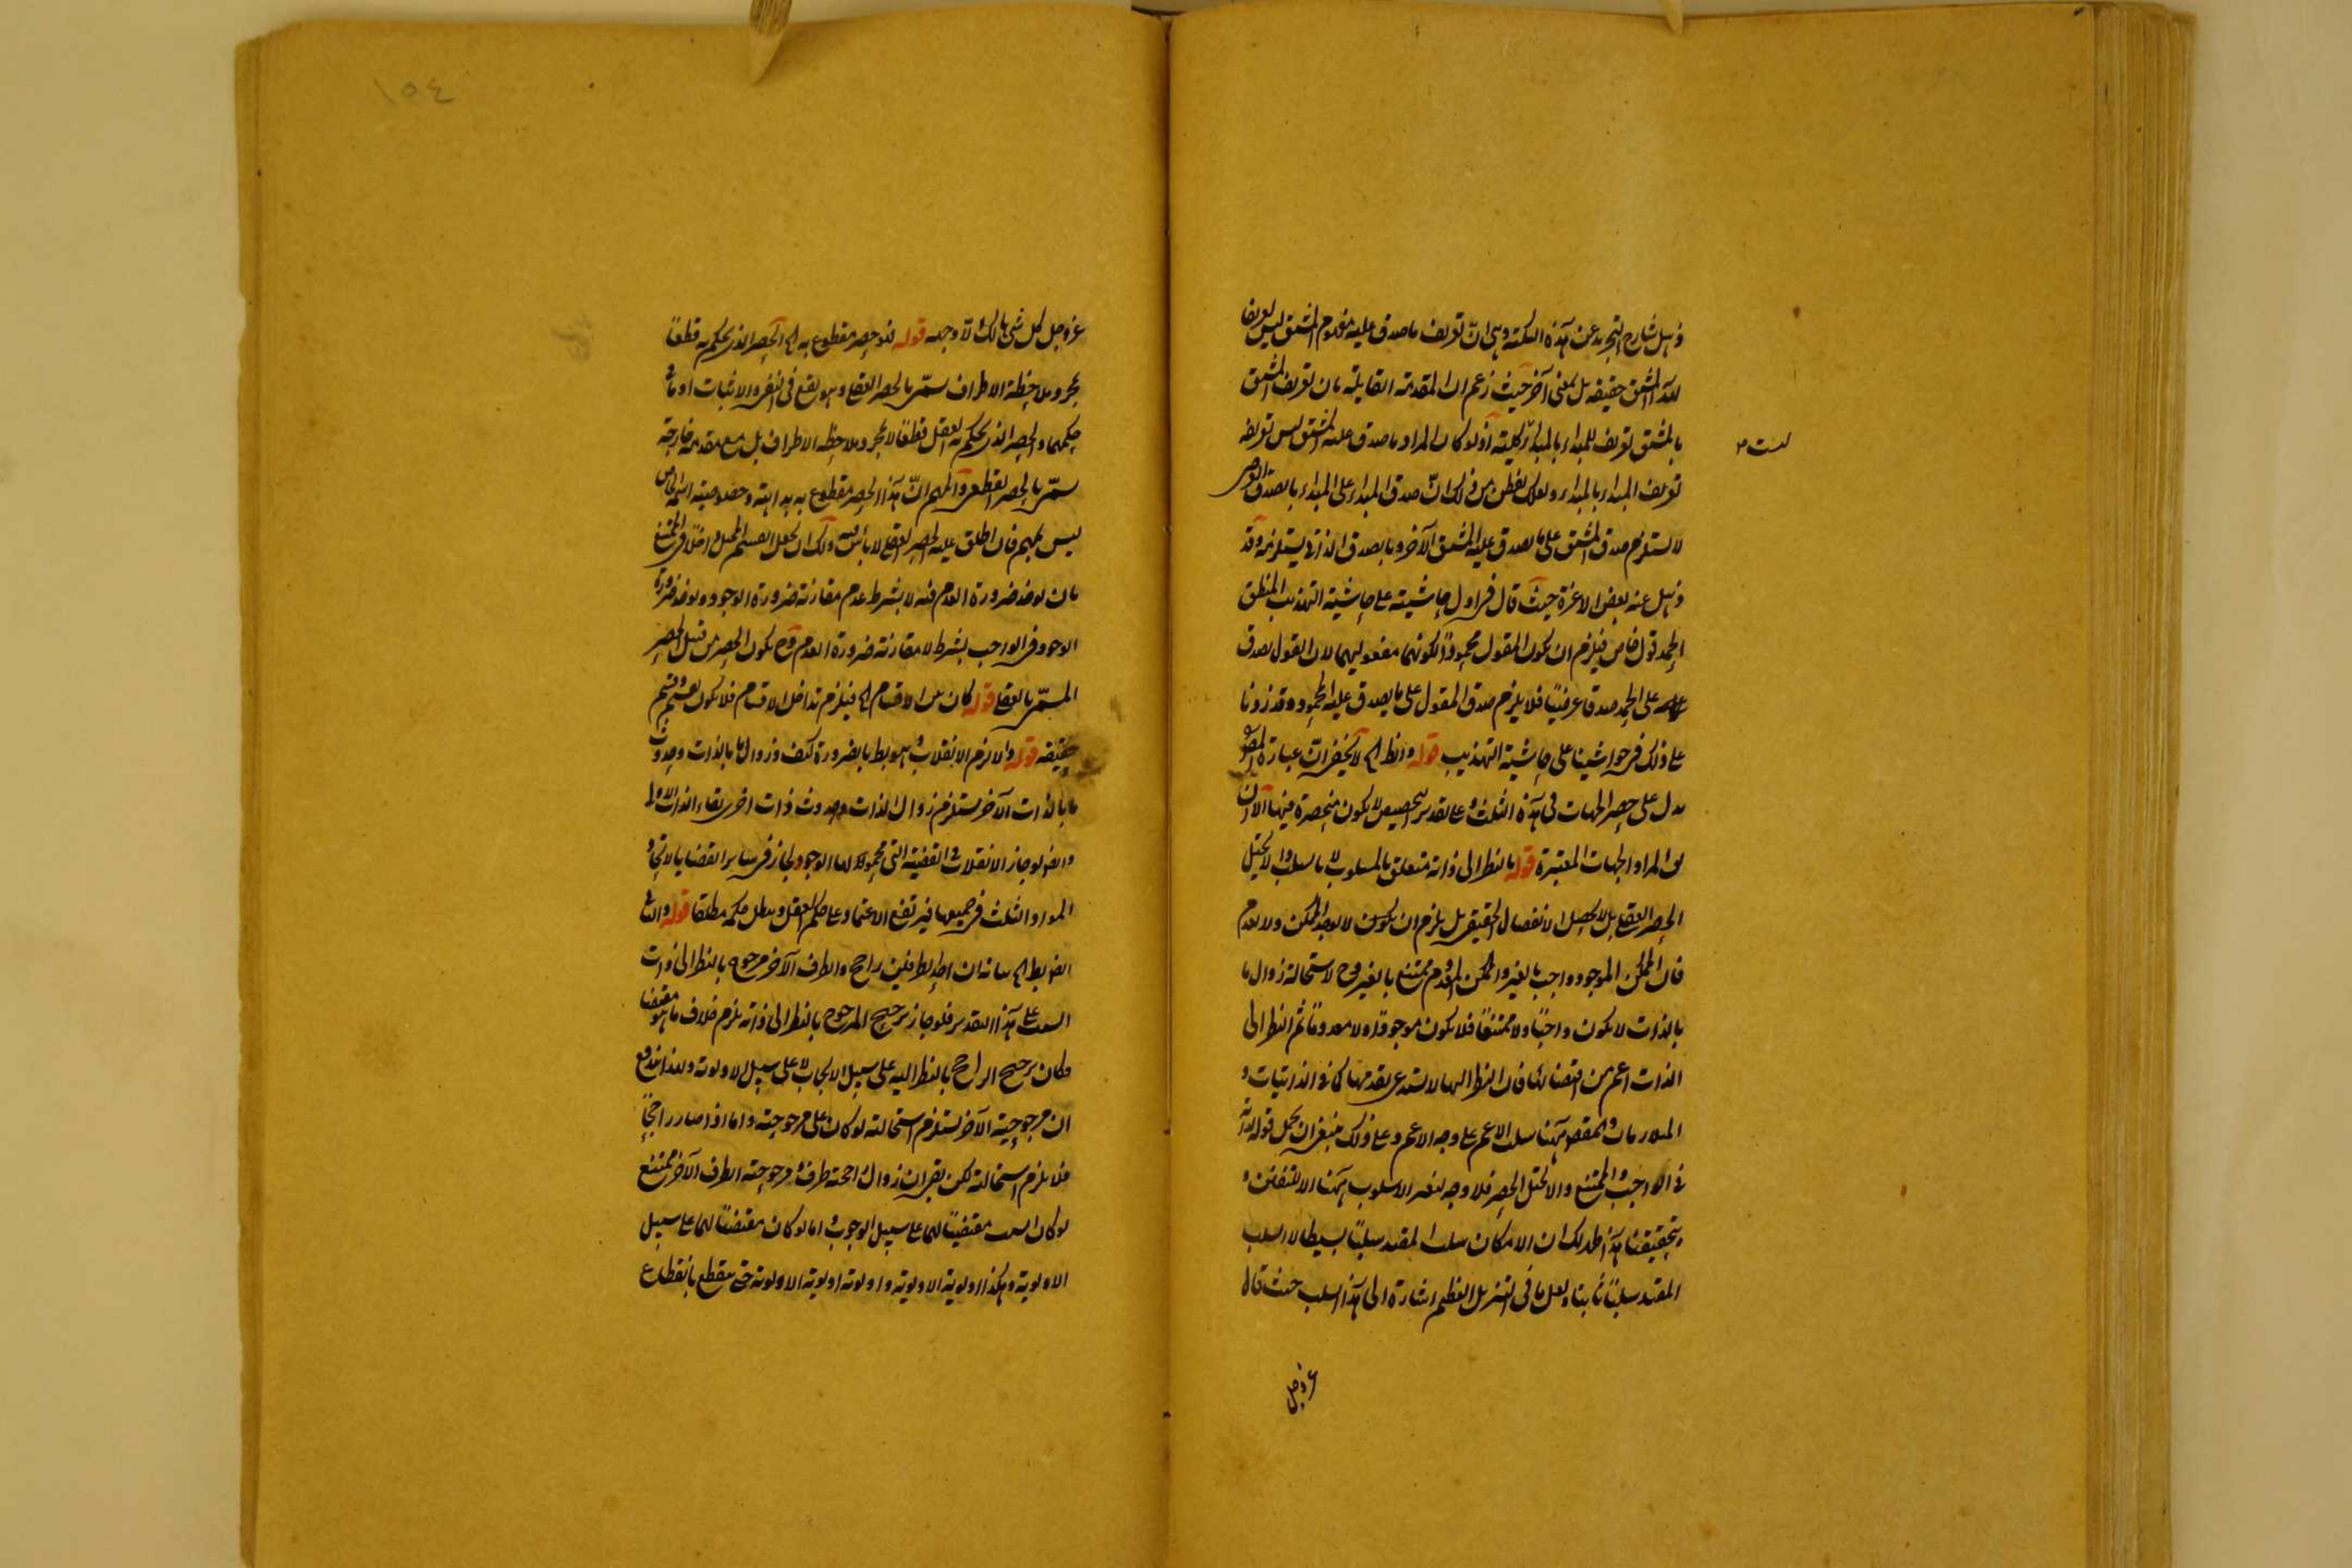 ذهل شارح التجريد عن هذه النكتة وهي ان تعريف ما صدق عليه مفهوم المشتق ليس تعريفا
للمشتق حقيقة بل بمعنى آخر حيث زعم ان المقدمة القايلة بان تعريف المشتق
بالمشتق تعريف للمبداء بالمبداء كلية اذ لو كان المراد ما صدق عليه المشتق ليس تعريفه
ليست
تعريف المبداء بالمبداء ولعلك تفطن من ذلك ان صدق المبداء على المبداء بالصدق العرضي
لا يستلزم صدق المشتق على ما يصدق عليه المشتق الآخر وبالصدق الذاتي يستلزمه وقد
ذهل عنه بعض الاعزة حيث قال في اول حاشيته على حاشية التهذيب المنطق
الحمد قول خاص فيلزم ان يكون المقول محمودا لكونهما مفعوليهما لان القول يصدق
على الحمد صدقا عرضيا فلا يلزم صدق المقول على ما يصدق عليه المحمود وقد زدنا
على ذلك في حواشينا على حاشية التهذيب قوله وانظر الخ لا يخفى ان عبارة المصنف
يدل على حصر الجهات في هذه الثلث وعلى تقدير التخصيص لا يكون منحصرة فيها الا ان
المراد الجهات المعتبرة قوله بالنظر الى ذاته متعلق بالمسلوب لا بالسلب والا لاختل
الحصر العقلي بل لا يحصل الانفصال الحقيقي بل يلزم ان يكون لا يوجد الممكن ولا يعدم
فان الممكن الموجود واجب بالغير والممكن المعدوم ممتنع بالغير وح لاستحالة زوال ما
بالذات لا يكون واجبا ولا ممتنعا فلا يكون موجودا ولا معدوما ثم النظر الى
الذات اعم من اقتضائها فان النظر اليها لا يستدعي تقدمها كما في الذاتيات و
المقصود ههنا سلب الاعم على وجه الاعم وعلى ذلك ينبغي ان يحمل قوله لذاته
في الواجب والممتنع والا لاختل الحصر فلا وجه لتغير الاسلوب ههنا الا للتفنن و
بتحقيقنا هذا ظهر لك ان الامكان سلب المقيد سلبا بسيطا لا السلب
المقيد سلبا ثابتا ولعل ما في التنزيل العظيم اشارة الى هذا السلب حيث قال
عز وجل
١٥٤
عز وجل كل شيء هالك الا وجهه قوله فهو حصر مقطوع به الخ الحصر الذي يحكم به قطعا
بمجرد ملاحظة الاطراف سمي بالحصر العقلي وهو يقع في النفي والاثبات او ما في
حكمهما والحصر الذي يحكم به العقل قطعا لا بمجرد ملاحظة الاطراف بل مع مقدمة خارجة
سمي بالحصر القطعي والمهم ان هذا الحصر مقطوع به بداهة وخصوصية اسم الخاص
ليس بمهم فان اطلق عليه الحصر العقلي لا بأس به ولك ان تجعل القسم المحتمل داخلا في الممتنع
بان يوخذ ضرورة العدم فيه لا بشرط عدم مقارنة ضرورة الوجود ويوخذ ضرورة
الوجود في الواجب بشرط لا مقارنة ضرورة العدم وح يكون الحصر من قبيل الحصر
المسمى بالعقلي قوله كان من الاقسام الخ فيلزم تداخل الاقسام فلا يكون تقسيم وقسيم
حقيقة قوله والا لزم الانقلاب وهو بط بالضرورة كيف وزوال ما بالذات وحدوث
ما بالذات الآخر يستلزم زوال الذات وحدوث ذات اخرى بقاء الذات الاولى
وايضا لو جاز الانقلاب في القضية التي محمولها الوجود لجاز في ساير القضايا لاتحاد
المواد الثلث في جميعها فيرتفع الاعتماد على حكم العقل وبطل حكمه مطلقا قوله والثاني
ايضا بط الخ بيانه ان احد الطرفين راجح والطرف الآخر مرجوح بالنظر الى ذات
على هذا التقدير فلو جاز ترجيح المرجوح بالنظر الى ذاته يلزم خلاف ما هو مقتضا
وكان ترجيح الراجح بالنظر اليه على سبيل الايجاب لا على سبيل الاولوية وبهذا اندفع
ان مرجوحية الآخر يستلزم استحالته لو كان على مرجوحيته واما اذا صار راجحا
فلا يلزم استحالته لكن بقي ان زوال راجحية طرف ومرجوحية الطرف الآخر ممتنع
لو كان مقتضيا لهما على سبيل الوجوب واما لو كان مقتضيا لهما على سبيل
الاولوية وهكذا اولوية الاولوية واولوية اولوية الاولوية حتى ينقطع بانقطاع